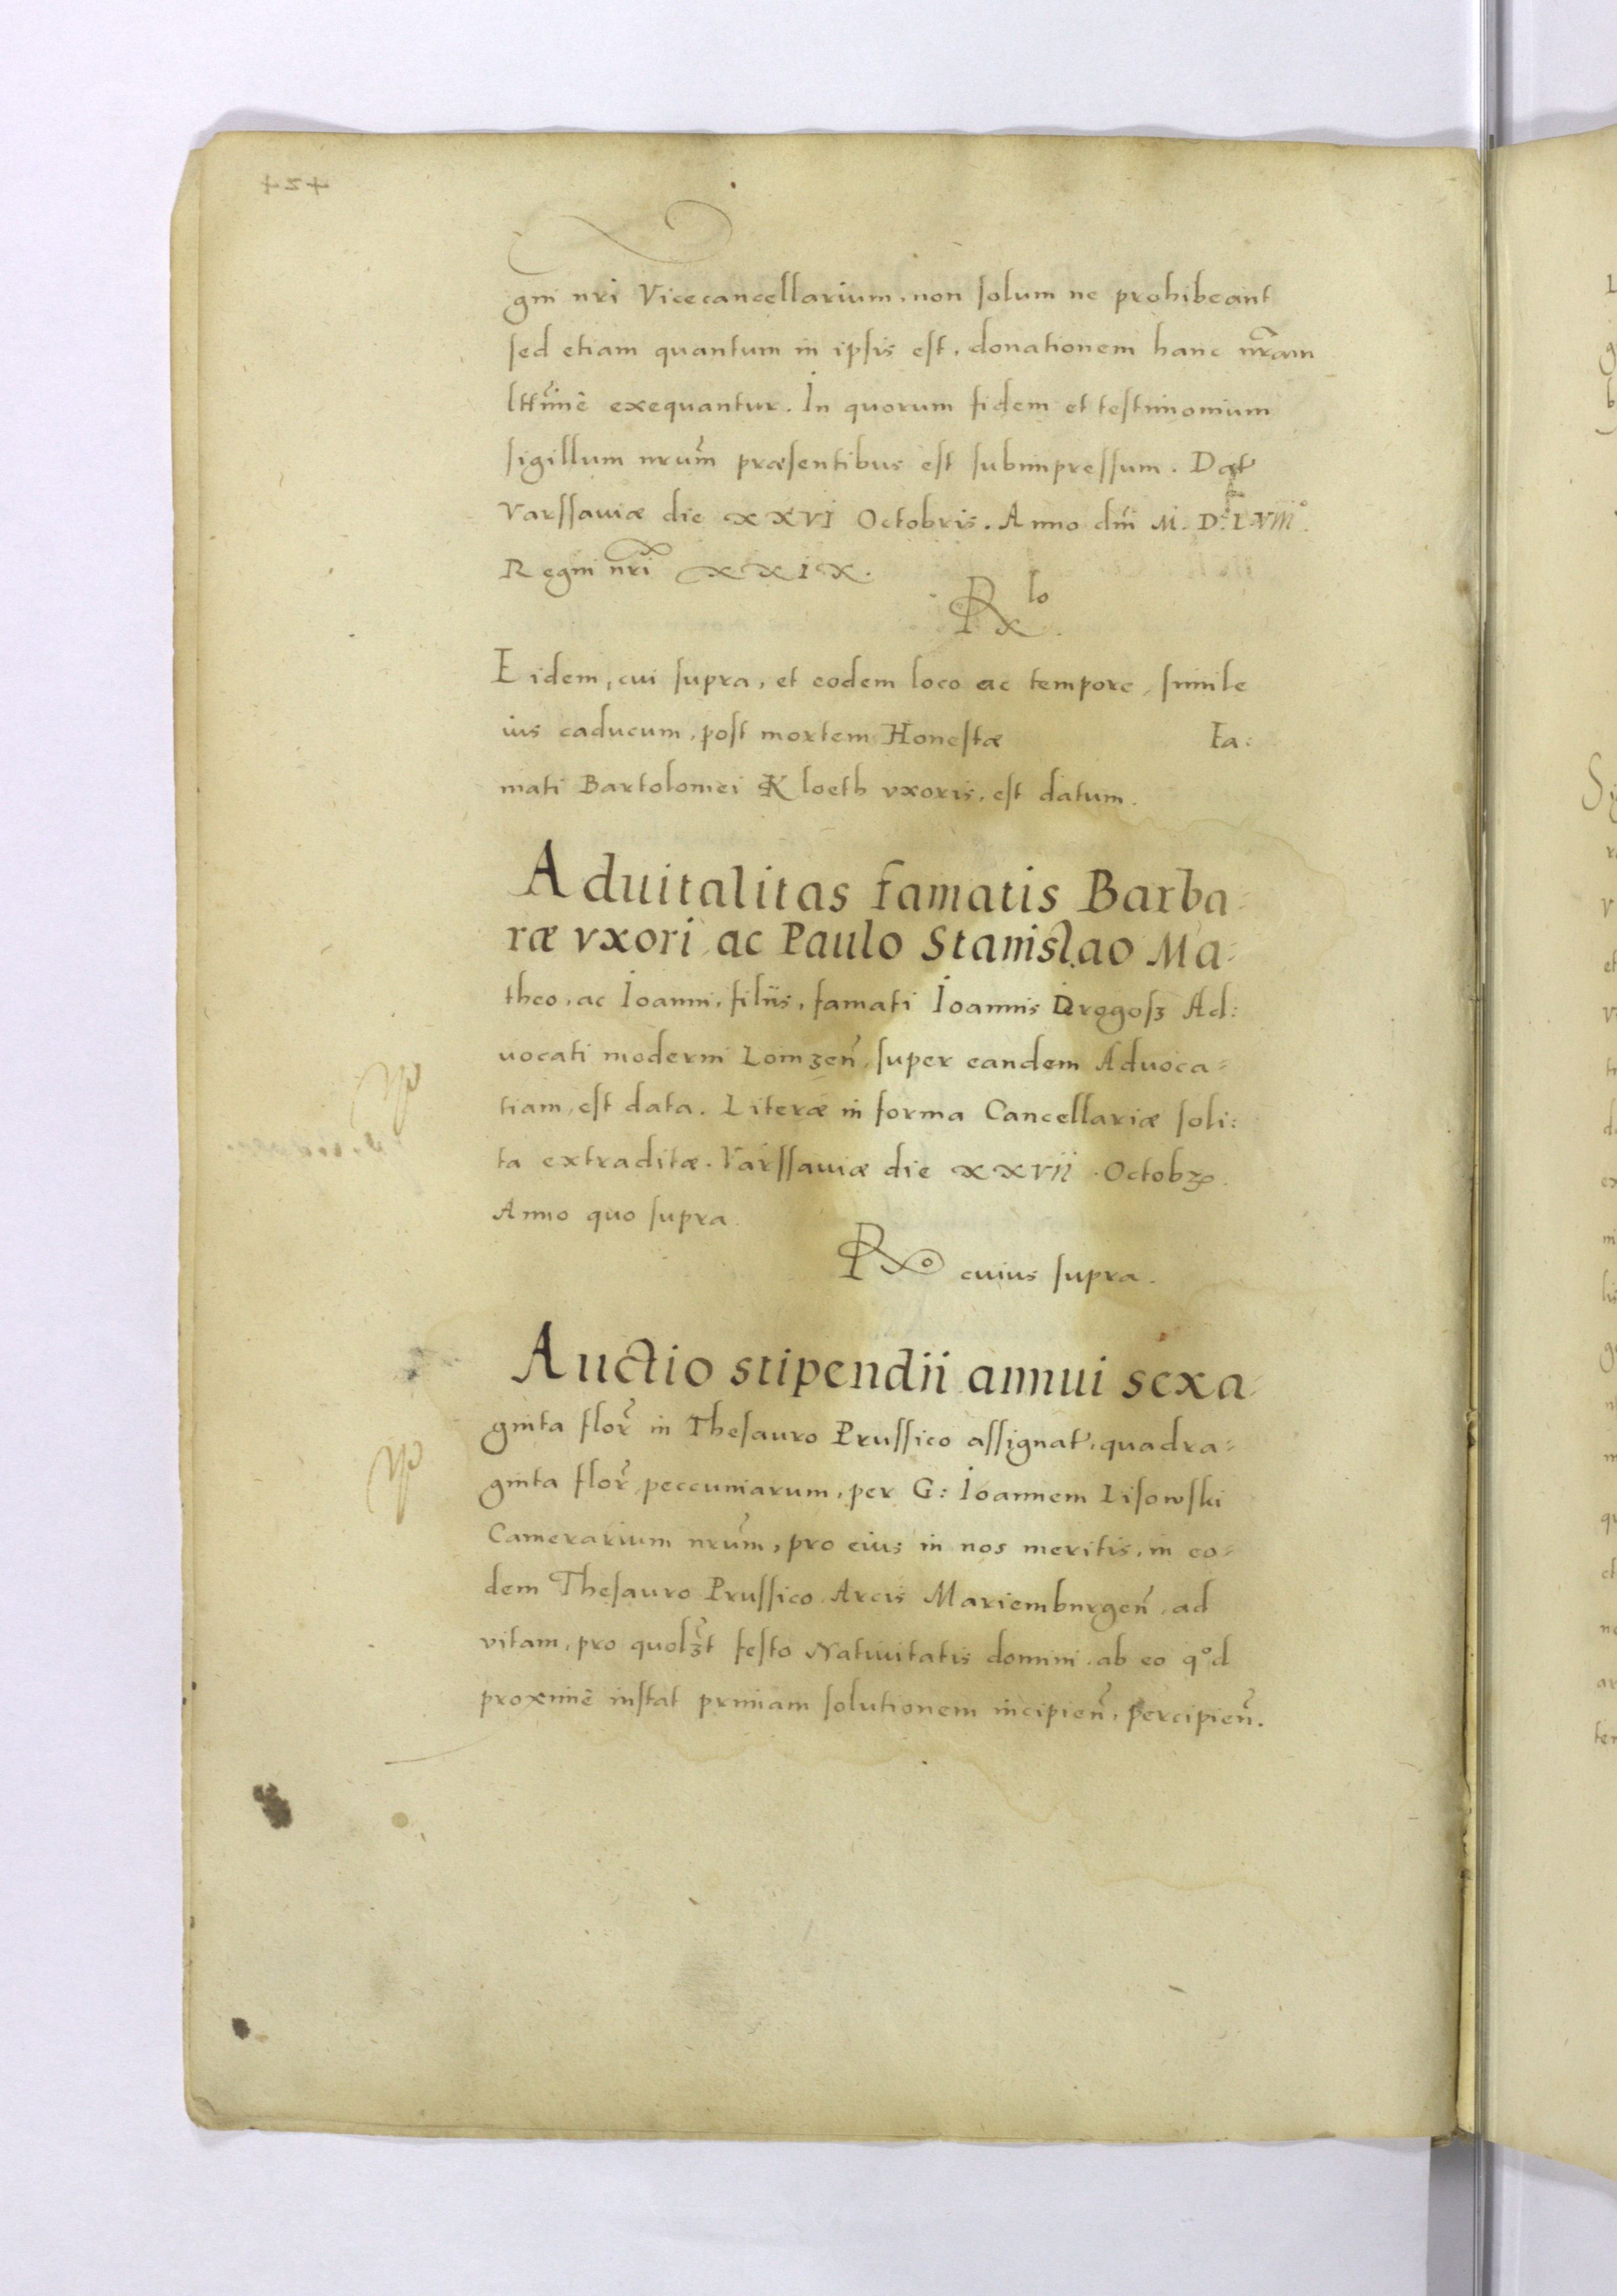 424
gni nri Vicecancellarium, non solum ne prohibeant
sed etiam quantum in ipsis est, donationem hanc nr̃am
lttimè exequantur. In quorum fidem et testimonium
sigillum nrum̃ præsentibus est subimpressum. Dat
Varssauiæ die XXVI Octobris. Anno dm̃ M. D. L. VIII°.
Regni nri XXIX.
Rx lo
Eidem, cui supra, et eodem loco ac tempore, simile
ius caducum, post mortem Honestæ Fa:
mati Bartolomei Kloeth vxoris, est datum.
Aduitalitas famatis Barba-
ræ vxori ac Paulo Stanislao Ma-
theo, ac Ioanni, filiis, famati Ioannis Drogosz Ad:
uocati moderni Lomzen̄, super eandem Aduoca-
tiam, est data. Literæ in forma Cancellariæ soli:
ta extraditæ. Varssauiæ die XXVII Octobꝝ.
Anno quo supra.
Rº cuius supra.
Auctio stipendii annui sexa-
ginta flor̃ in Thesauro Prussico assignat, quadra-
ginta flor̃ peccuniarum, per G: Ioannem Lisowski
Camerarium nrum̃, pro eius in nos meritis, in eo-
dem Thesauro Prussico Arcis Mariemburgen̄, ad
vitam, pro quolꝫt festo Natiuitatis domini, ab eo q°d
proximè instat primam solutionem incipien̄, percipien̄.